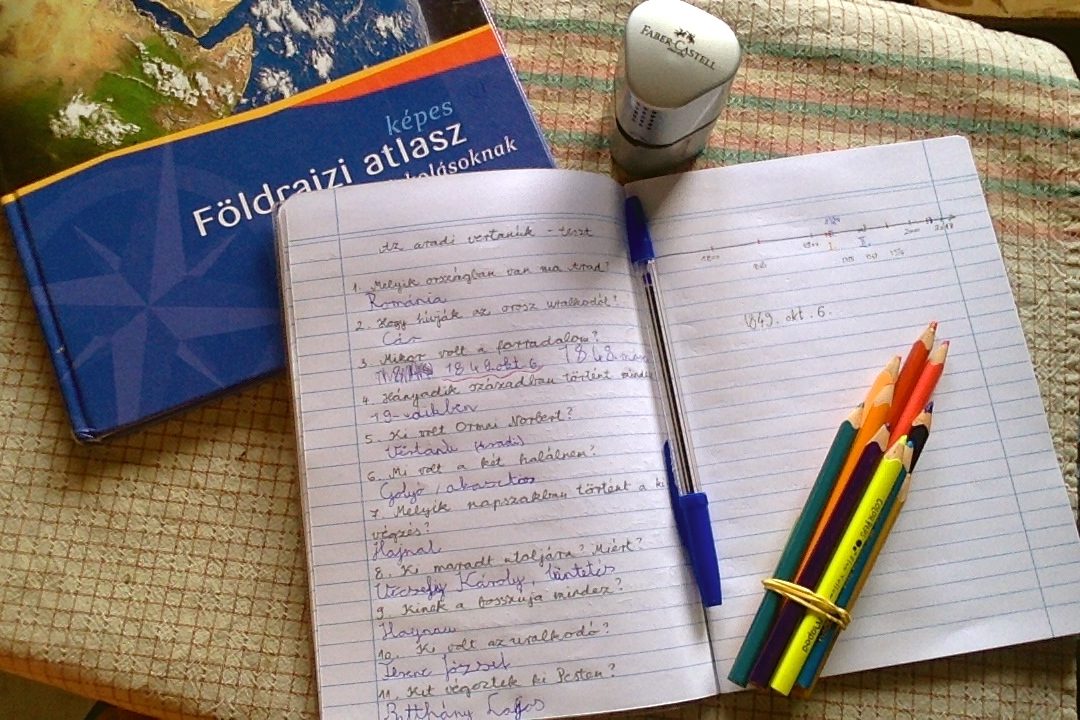 képes
Földrajzi atlasz
FABER-CASTELL
Az aradi vértanúk - teszt
1. Melyik országban van ma Arad?
Románia
2. Hogy hívják az orosz uralkodót?
Cár
3. Mikor volt a forradalom?
1849 okt 6 1848
4. Hányadik században történt mindez
19-dikben
5. Ki volt Ormai Norbert?
Vértanú (aradi)
6. Mi volt a két halálnem?
Golyó / akasztás
7. Melyik napszakban történt a ki
végzés?
Hajnal
8. Ki maradt utoljára? Miért?
Vécsey Károly, büntetés
9. Kinek a bosszúja mindez?
Haynau
10. Ki volt az uralkodó?
Ferenc József
11. Kit végeztek ki Pesten?
Batthány Lajos
1800
1900
2000
1849. okt. 6.